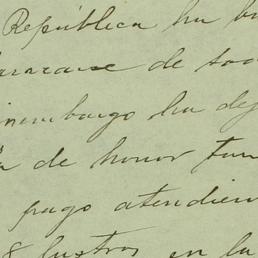 República ha b
de tod
inembargo ha dej
a de honor tan
pago atendien
8 lustros en la